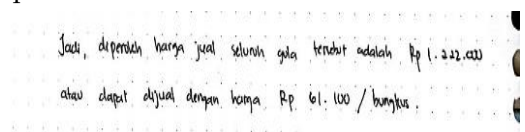 Jadi, diperoleh harga jual seluruh gula tersebut adalah Rp 1.222.000
atau dapat dijual dengan harga Rp 61.100 / bungkus.